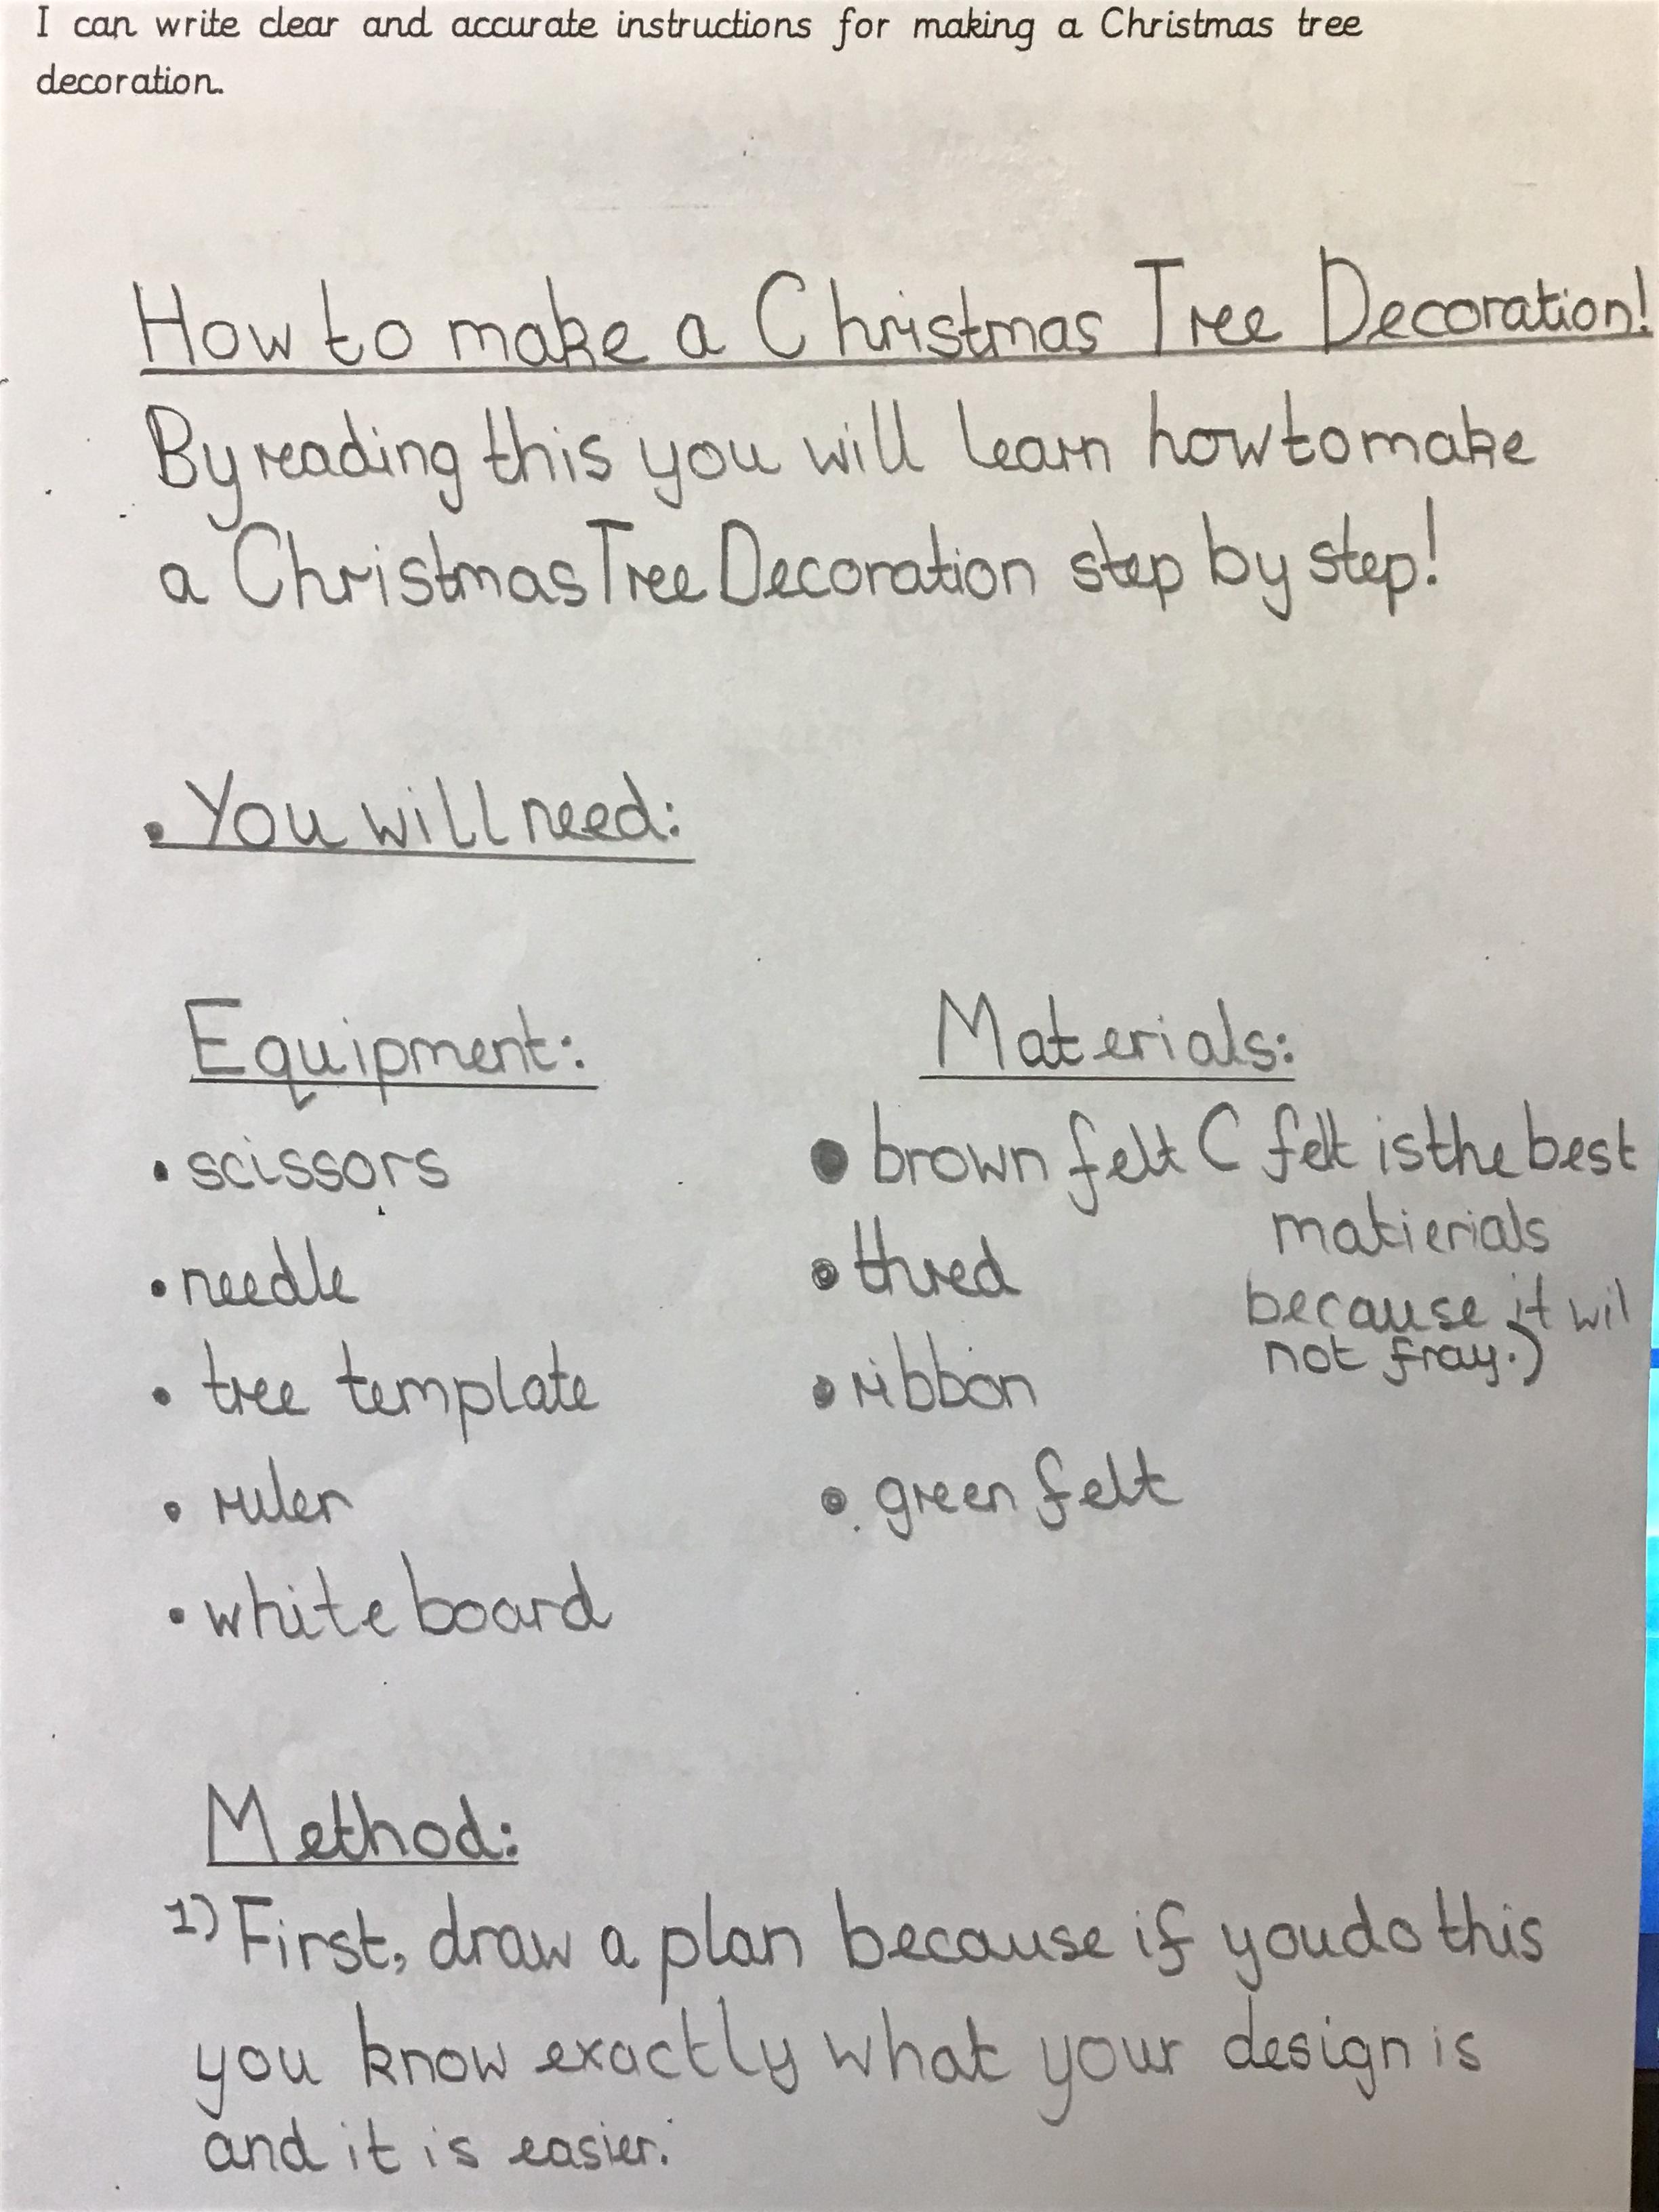 I can write clear and accurate instructions for making a Christmas tree
decoration.
How to make a Christmas Tree Decoration!
By reading this you will learn how to make
a Christmas Tree Decoration step by step!
• You will need:
Equipment:
• scissors
• needle
• tree template
• ruler
• white board
Materials:
• brown felt ( felt is the best
matierials
because it wil
not fray.)
• thred
• ribbon
• green felt
Method:
1) First, draw a plan because if you do this
you know exactly what your design is
and it is easier.